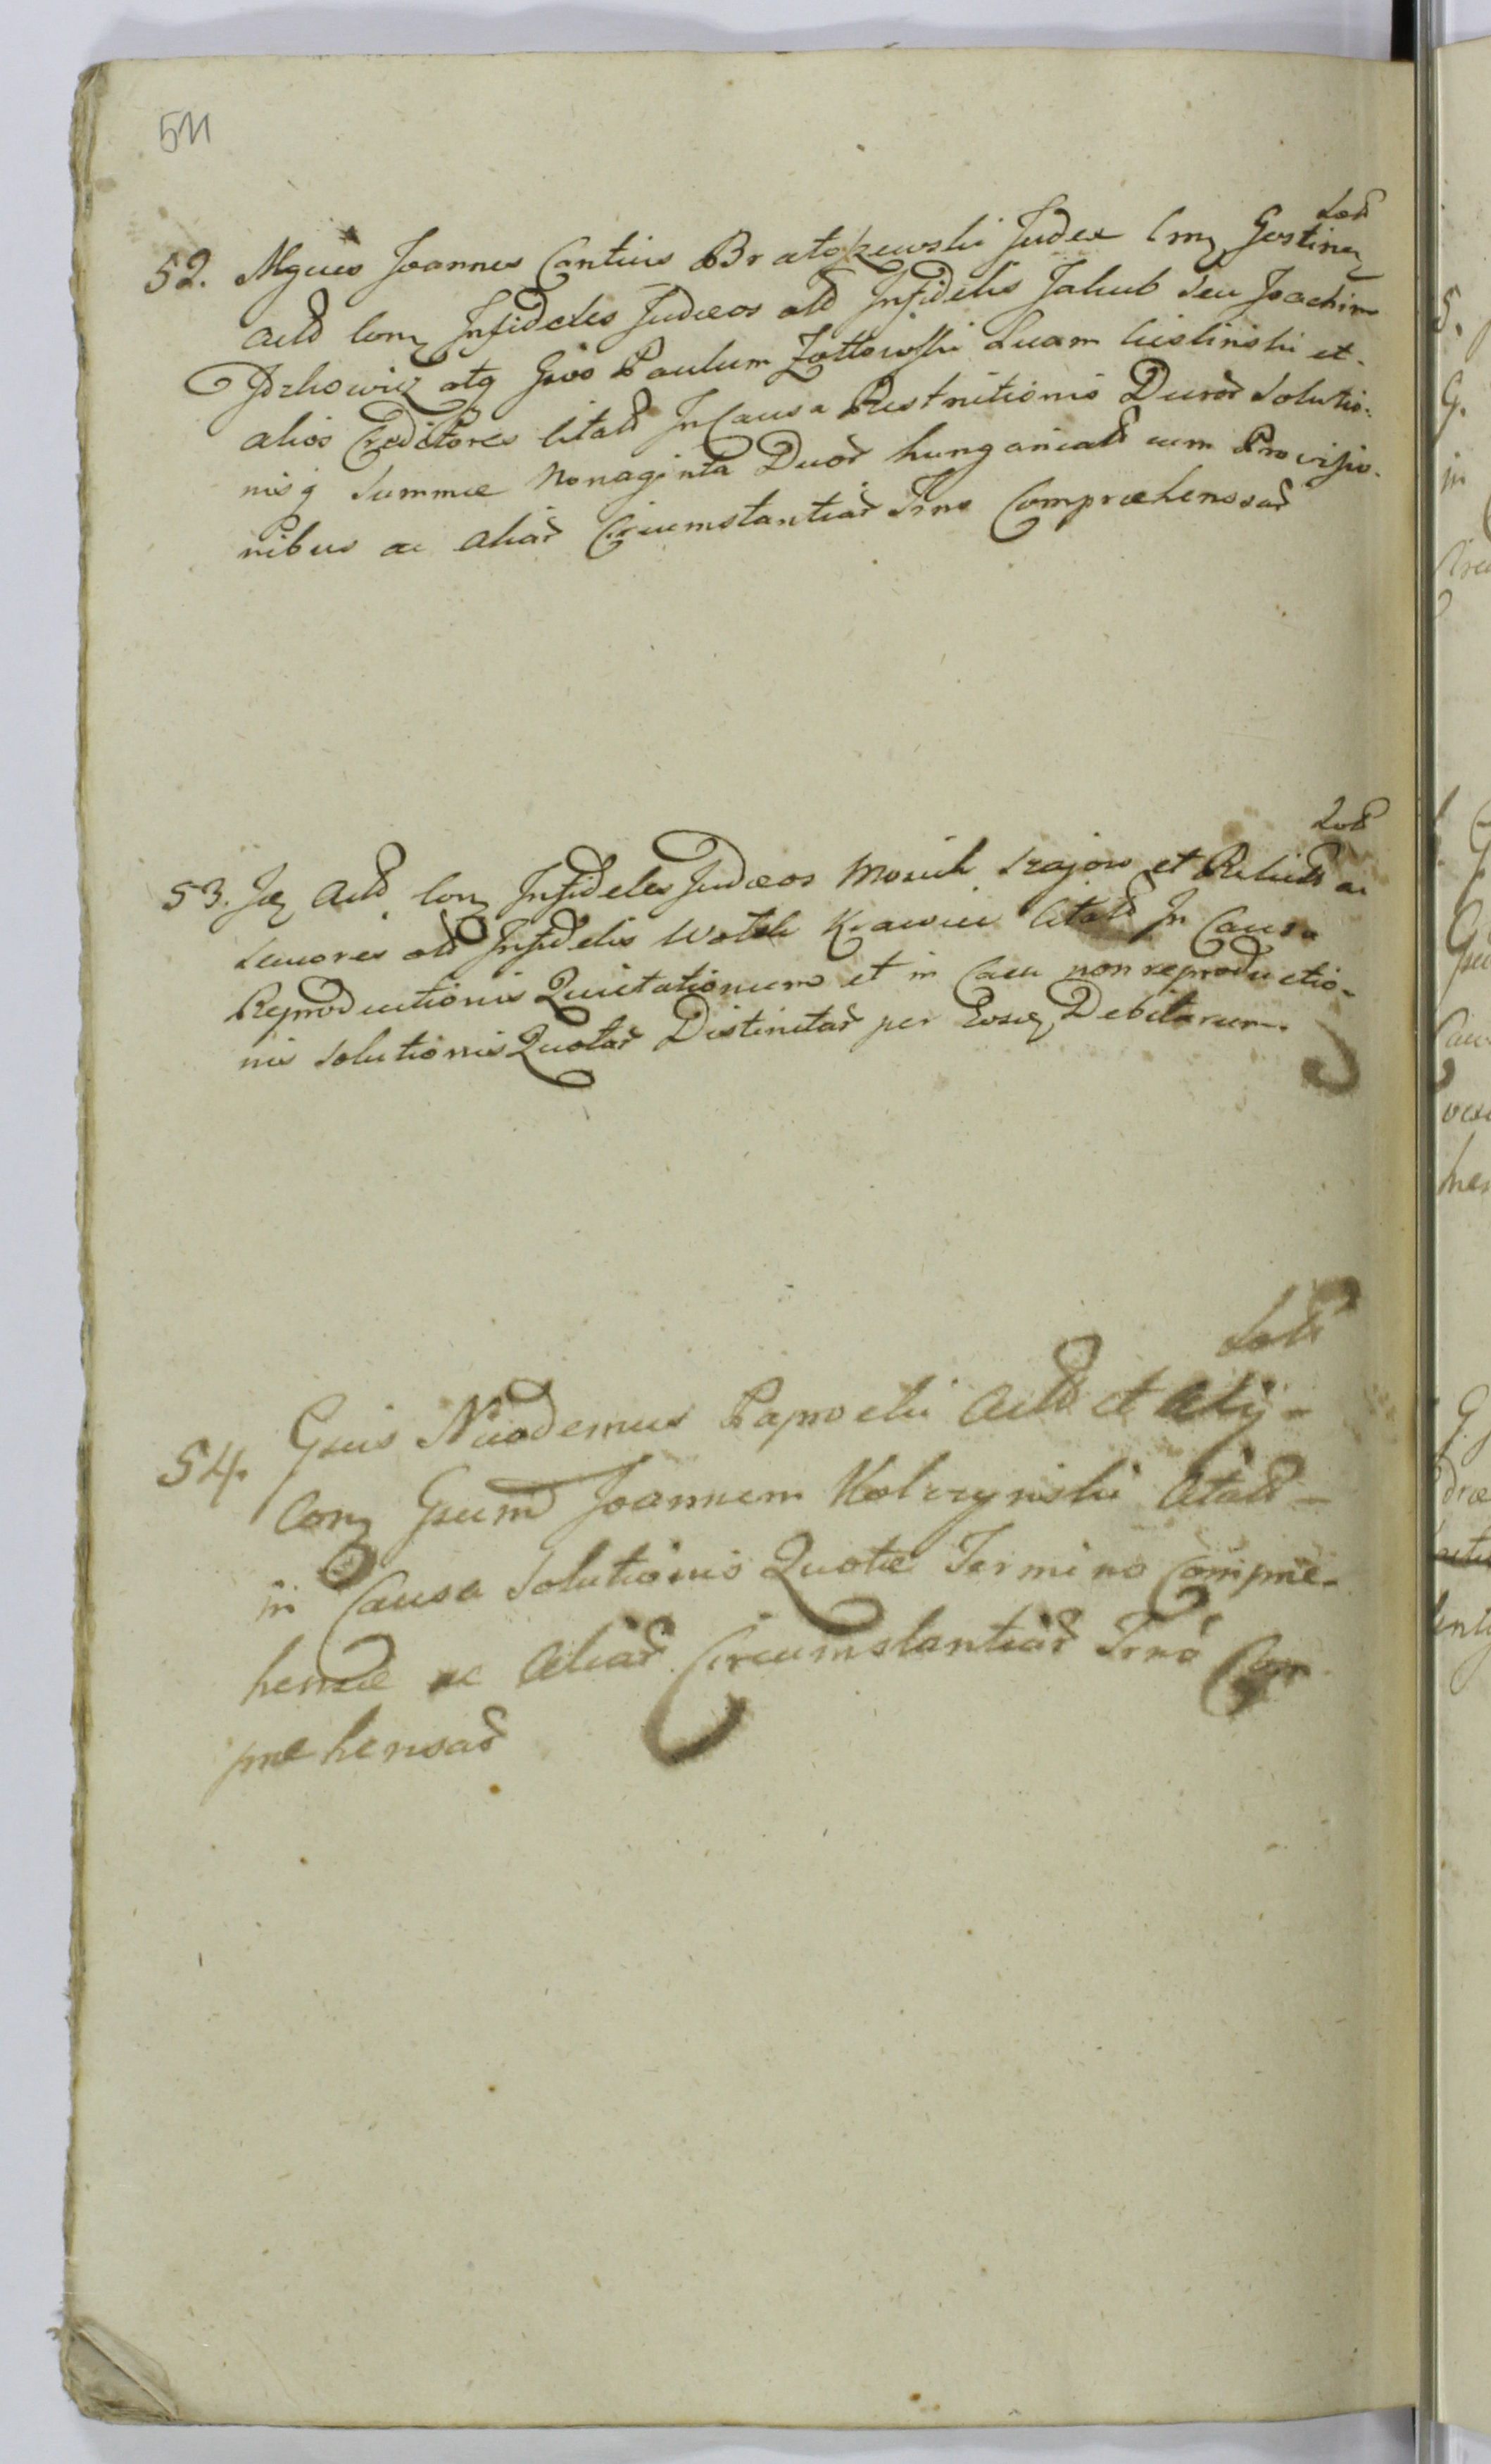 511
52. Mgcus Joannes Cantius Bratoszewski Judex Cmz Gostinen
Actd conz Infideles Judæos atd Infidelis Jakub seu Joachim
atq Gsos Paulum Zołtowski Lucam Cieslinski et
alios Creditores Citatd In Causa Restrictionis Duor Solutio-
nisq Summæ Nonaginta Duor hungaricatd cum Provisio-
nibus ac aliar Circumstantiar Trno Compræhensar
53. Actd conz Infideles Judæos et
Seniores atd Infidelis Krawiec Citatd In Causa
Reproductionis Quietationum et in Casu non reproductio-
nis Solutionis Quotar Distinctar per Debitarum.
54. Gsus Nicodemus Paprocki Actd et Alij-
Conz Gsum Joannem Kolczynski Citatd-
in Causa Solutionis Quotæ Termino Compræ-
hensæ ac Aliar Circumstantiar Trno Com
præhensar